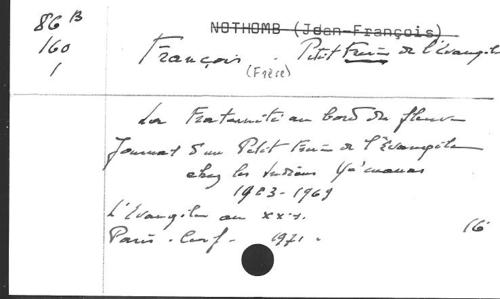 86 B
160
1
NOTHOMB (Jean-François)
François . Petit Frère de l'Évangile
(Frère)
La Fraternité au bord du fleuve
Journal d'un Petit Frère de l'Évangile
chez les Indiens Yécuanas
1963-1969
L'Évangile au XXe s.
Paris . Cerf - 1971 .
16°